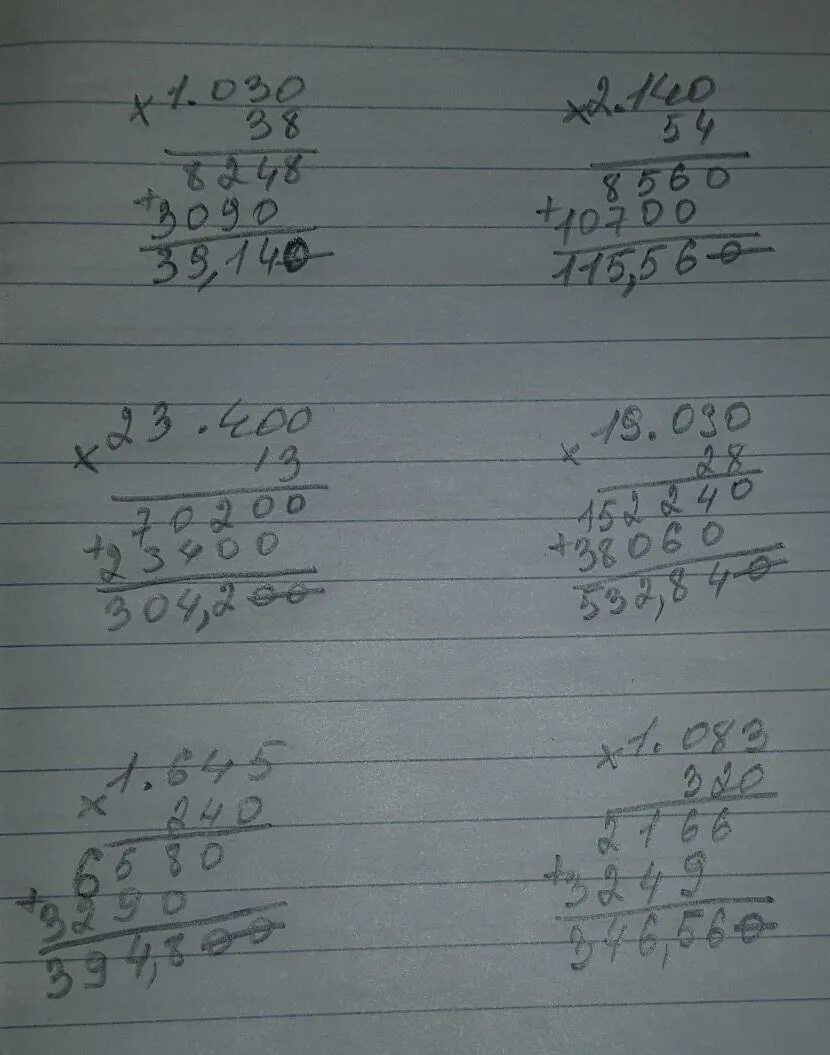 ×1.030
38
8248
+3090
39,140
×2.140
54
8560
+10700
115,560
×23.400
13
70200
+23400
304,200
×19.030
28
152240
+38060
532,840
×1.645
240
6580
+3290
394,800
×1.083
320
2166
+3249
346,560